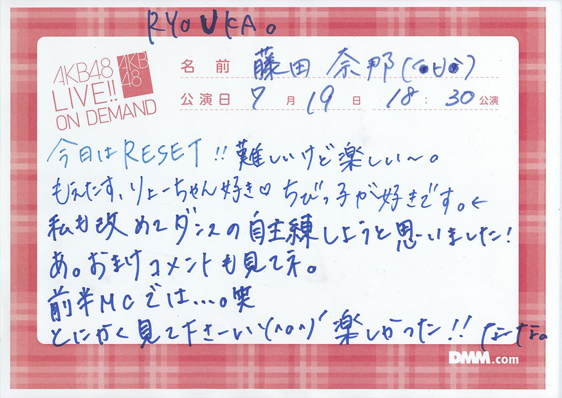 RYOUKA。
AKB48
LIVE!!
ON DEMAND
AKB48
名前 藤田 奈那(・∪・)
公演日 7月19日 18:30公演
今日はRESET!!難しいけど楽しい〜。
もえたす、りょーちゃん好き♡ちびっ子が好きです。←
私も改めてダンスの自主練しようと思いました!
あ。おまけコメントも見てネ。
前半MCでは…。笑
とにかく見て下さーいヽ(^o^)ノ 楽しかった!! なーな。
DMM.com